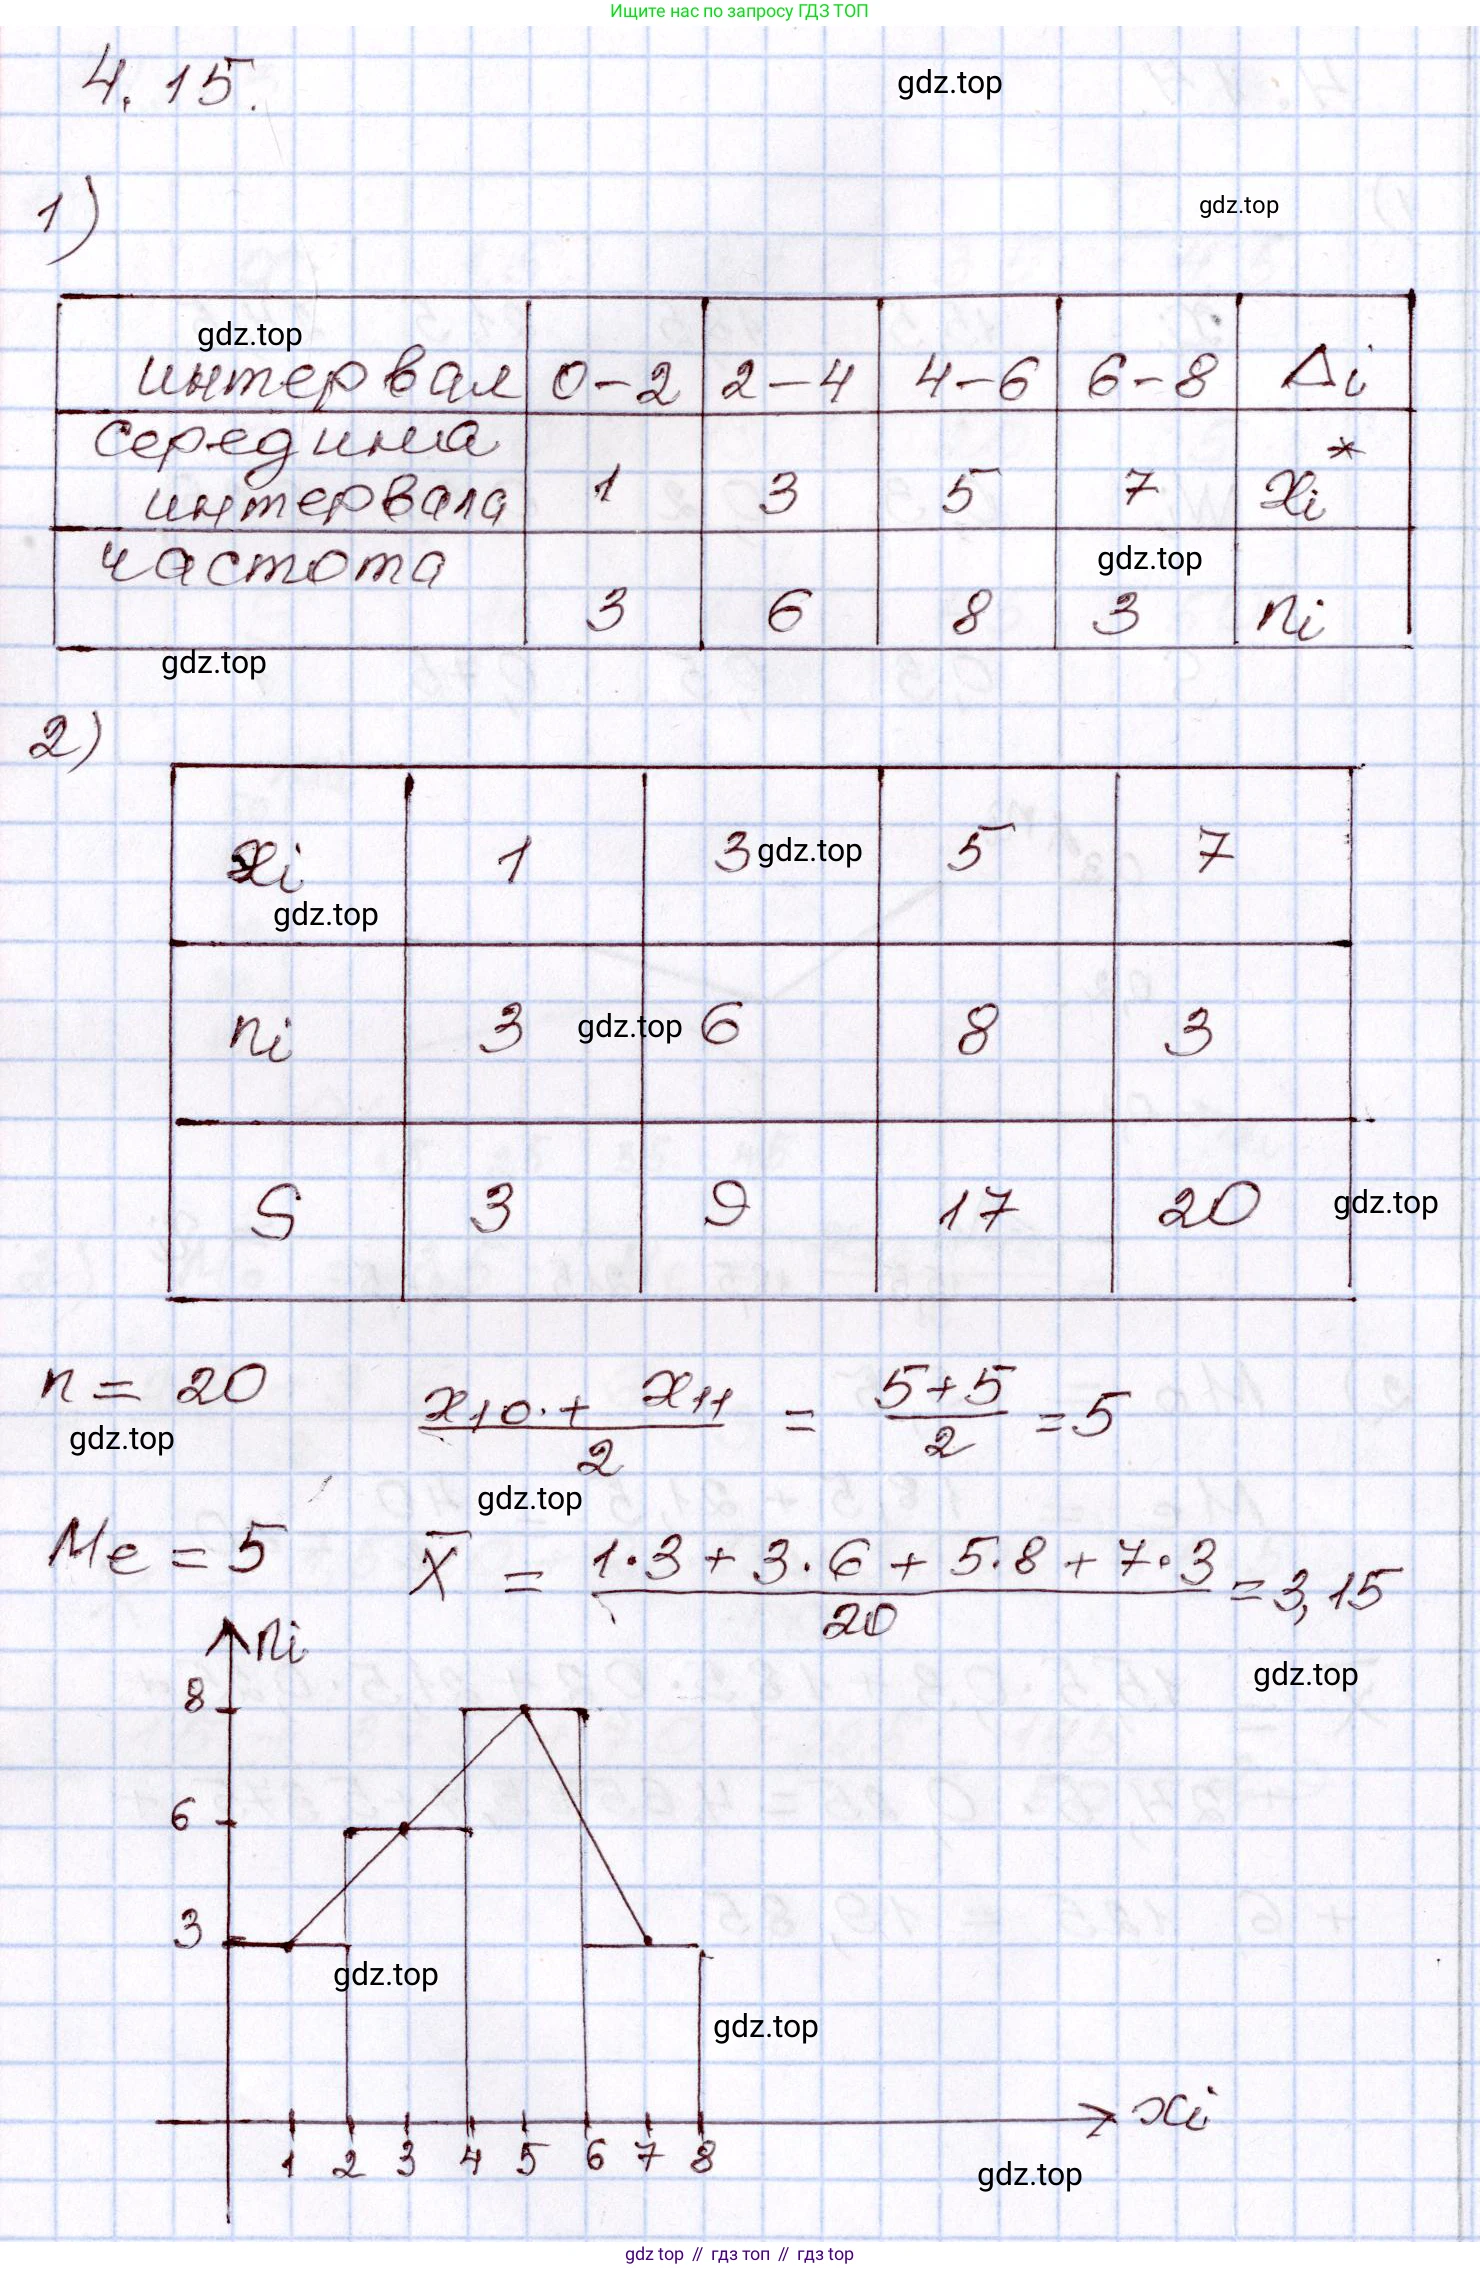 Ищите нас по запросу ГДЗ ТОП
4.15.
gdz.top
1)
gdz.top
gdz.top
интервал 0-2 2-4 4-6 6-8 Δi
середина
интервала 1 3 5 7 xi*
частота
gdz.top
3 6 8 3 ni
gdz.top
2)
xi 1 3 gdz.top 5 7
gdz.top
ni 3 gdz.top 6 8 3
S 3 9 17 20 gdz.top
n = 20 (x10 + x11)/2 = (5+5)/2 = 5
gdz.top
gdz.top
Me = 5 X̄ = (1·3 + 3·6 + 5·8 + 7·3)/20 = 3,15
ni
gdz.top
8
6
3
gdz.top
gdz.top
xi
1 2 3 4 5 6 7 8
gdz.top
gdz top // гдз топ // gdz.top